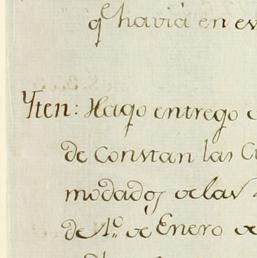 q.e havia en ev
Yten: Hago entrego
de constan las C
modados de las
de 1.º de Enero de